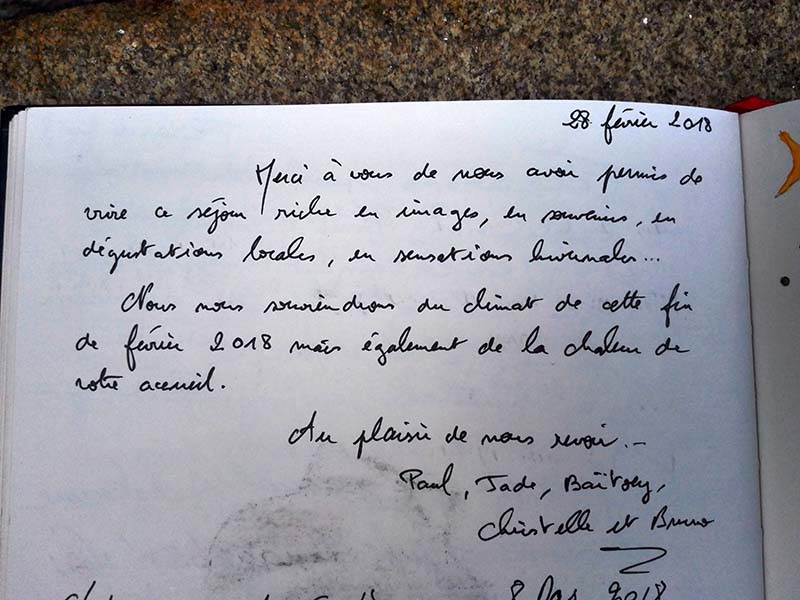 28 février 2018
Merci à vous de nous avoir permis de
vivre ce séjour riche en images, en souvenirs, en
dégustations locales, en sensations hivernales...
Nous nous souviendrons du climat de cette fin
de février 2018 mais également de la chaleur de
votre accueil.
Au plaisir de nous revoir.-
Paul, Jade,
Christelle et Bruno
2018